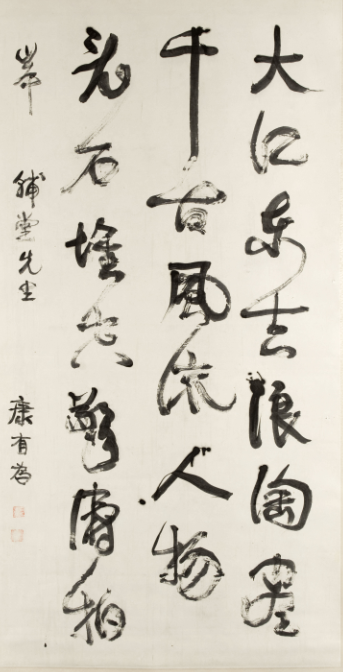 大江東去浪淘盡
千古風流人物
亂石空驚濤拍
堂先生
康有為